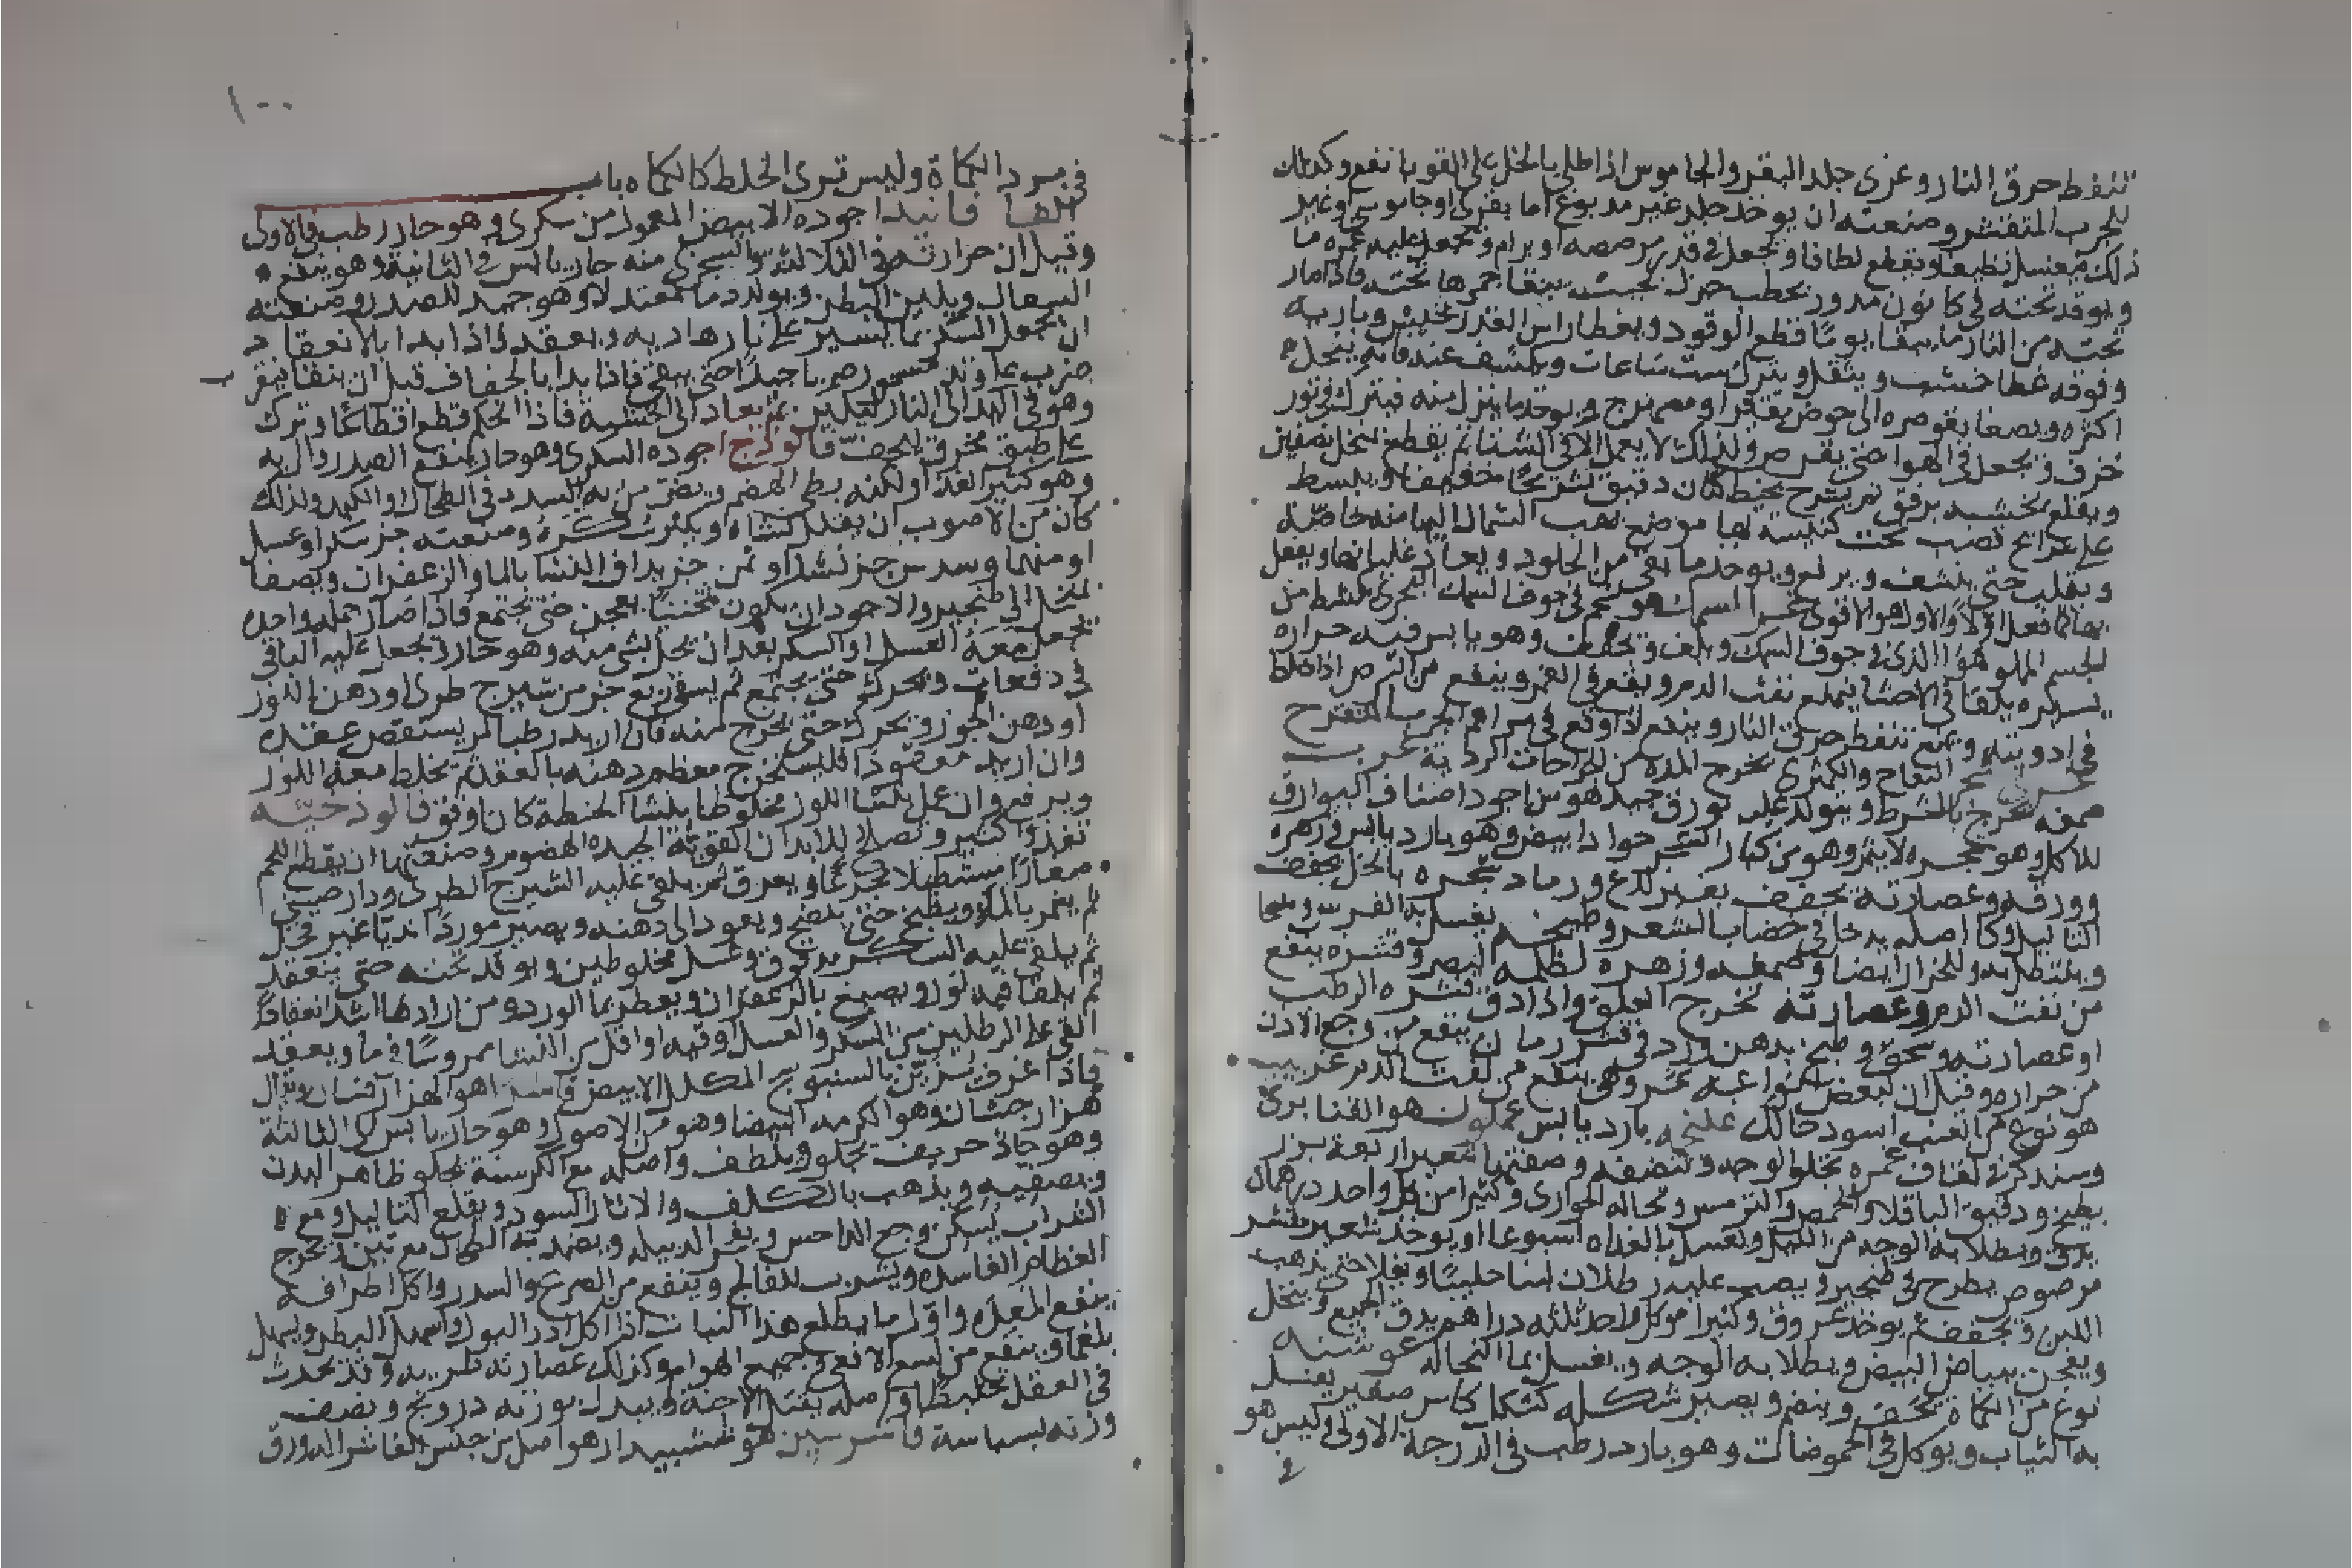 تنفط حرق النار وغرى جلد البقر والجاموس اذا طلى بالخل على القوبا نفع وكذلك
للجرب المتقشر وصنعته ان يوخذ جلد غير مدبوغ اما بقرى او جاموسى او غير
ذلك فيغسل نظيفا ويقطع لطافا ويجعل فى قدر مرصصه او برام ويجعل عليه غمره ما
ويوقد تحته فى كانون مدور بحطب جزل بحيث يبقا جمرها تحته فاذا صار
تحته من النار ما يبقا يوما قطع الوقود ويغطا راس القدر بخيش وباريه
وفوقه غطا خشب ويثقل ويترك ست ساعات ويكشف عنه فانه ينحل
اكثره ويصفا بقوصره الى حوض مقير او مصهرج ويوخذ ما ينزل منه فيترك فى تور
خزف ويجعل فى الهوا حتى يقرص ولذلك لا يعمل الا فى الشتا ثم يقطع بمنخل نصفين
ويقلع بخشبه برفق ثم يشرح بخيط كتان دقيق تشريحا خفيفا ويبسط
على عرايج قصب تحت كنيسه لها موضع يهب الشمال اليها منه خاصة
ويقلب حتى ينشف ويرفع ويوخذ ما بقى من الجلود ويعاد غليانها ويفعل
بها كما فعل اولا والاول هو الاقوى غرا السمك هو شحم فى جوف السمك البحرى يكشط من
الجسم المملو هوا الذى فى جوف السمك ويلف ويجفف وهو يابس فيه حراره
يسيره يلقا فى الاحشا فيمنع نفث الدم ويقع فى الغمر وينفع من البرص اذا خلط
فى ادويته ويمنع تنفط حرق النار وينفع اذا وقع فى مراهم الجرب المتقرح
التفاح والكمثرى يخرج المده من الجراحات الرديه غرب
صمغه يخرج بالشرط ويتولد عليه بورق جيد هو من اجود اصناف البوارق
للاكل وهو شجره لا يثمر وهو من كبار الشجر حوا دا بيض وهو بارد يابس فى زهره
وورقه وعصارته تجفيف بغير لذع ورماد شجره بالخل يجفف
الثاليل وكذا اصله يدخل فى خضاب الشعر وطبيخه يغسل به النقرس وملحا
ويلتطخ به وللخزاز ايضا وصمغه وزهره لظلمه البصر وقشره ينفع
من نفث الدم وعصارته تخرج العلق واذا دق قشره الرطب
او عصارته وسحق وطبخ بدهن ورد فى قشر رمان ينفع من وجع الاذن
من حراره وقيل ان بعض يكنوا عنه ينفع من نفث الدم غربيب
هو نوع من العنب اسود حالك غلنجه بارد يابس غملول هو القنابرى
وسنذكره فى القاف غمره تخلط الوجه وتنضفه وصفتها شعير اربعة بزر
بطيخ ودقيق الباقلا والحمص والترمس ونخاله الحوارى وكثيرا من كل واحد درهمان
يدق ويطلا به الوجه من الليل ويغسل بالغداه اسبوعا او يوخذ شعير مقشر
مرضوض يطرح فى طنجير ويصب عليه رطلان لبنا حليبا ويغلا حتى يذهب
اللبن ويجفف ثم يوخذ عروق وكثيرا من كل واحد ثلثه دراهم يدق الجميع وينخل
ويعجن ببياض البيض ويطلا به الوجه ويغسل بما النخاله غوشنه
نوع من الكماة يجفف وينضم ويصير شكله كشكل كاس صغير يغسل
به الثياب ويوكل فى الحموضات وهو بارد رطب فى الدرجة الاولى وليس هو
فى
١٠٠
فى برد الكماة وليس ترى الخلط كالكماه باب
الفا فانيد اجوده الابيض المعمول من سكرى وهو حار رطب فى الاولى
وقيل ان حرارته فى الثالثة والسجزى منه حار يابس فى الثانية وهو ينفع
السعال ويلين البطن ويولد دما معتدلا وهو جيد للصدر وصنعته
ان يجعل السكر بما يسير على نار هاديه ويعقد فاذا بدا بالانعقاد
ضرب على وتد ضربا جيدا حتى يبقى فاذا بدا بالجفاف قبل ان ينقا ينقر
وهو فى اليد الى النار ليلين ثم يعاد الى الخشبة فاذا احكم قطع اقطاعا وترك
على طبق مخرق ليجف فالوذج اجوده السكرى وهو حار ينفع الصدر والريه
وهو كثير الغذا ولكنه بطى الهضم ويضر من به السدد فى الطحال او الكبد ولذلك
كان من الاصوب ان يقلل نشاه ويكثر سكره وصنعته جز سكر او عسل
او منهما وسدس جز نشا او ثمن جز يداف النشا بالما والزعفران ويصفا
بمنخل الى طنجير والاجود ان يكون ثخينا يعجن حتى يجتمع فاذا صار جملة واحده
يجعل معه العسل او السكر بعد ان يحل بشى منه وهو حار ثم يجعل عليه الباقى
فى دفعات ويحرك حتى يجتمع ثم يسقى ربع جز من شيرج طرى او دهن اللوز
او دهن الجوز ويحرك حتى يخرج منه فان اريد رطبا لم يستقص عقده
وان اريد معقودا فليستخرج معظم دهنه بالعقد ثم يخلط معه اللوز
ويرفع وان عمل بلشا اللوز مخلوطا بنشا الحنطة كان اوفق فالوذجيه
تغذوا كثير وتصلح للابدان القوية الجيده الهضوم وصنعتها ان يقطع اللحم
صغارا مستطيلا مجزعا ويعرق ثم يلقى عليه الشيرج الطرى ودارصينى
ثم يغمر بالما ويطبخ حتى ينضج ويعود الى دهنه ويصير موردا نديا غير قحل
ثم يلقى عليه السكر مدقوق وعسل مخلوطين ويوقد تحته حتى ينعقد
ثم يلقا فيه لوز ويصبغ بالزعفران ويعطر بما الورد ومن ارادها اشد انعقادا
القى على الرطلين من السكر والعسل اوقيه او اقل من النشا ممروسا فى ما ويعقد
فاذا غرف تزين بالسنبوسج المكلل الابيض فاشرا هو الهزارفشان ويقال
هزار جشان وهو الكرمه البيضا وهو من الاصول وهو حار يابس فى الثالثة
وهو حاد حريف يجلو ويلطف واصله مع الكرسنة يجلو ظاهر البدن
ويصفيه ويذهب بالكلف والاثار السود ويقلع الثاليل ومع
الشراب يسكن وجع الداحس ويفجر الدبيله ويضمد به الطحال مع تين ويخرج
العظام الفاسده ويشرب للفالج وينفع من الصرع والسدر واكل اطرافه
ينفع المعده واول ما يطلع هذا النبات اذا اكل ادر البول واسهل البطن ويسهل
بلغما وينفع من لسع الافعى وجميع الهوام وكذلك عصارته طريه وقد يحدث
فى العقل تخليطا واصله يقتل الاجنة ويبدل بوزنه درونج ونصف
وزنه بسباسة فاشرسين هو ششبيدار هو اصل من جنس الفاشرا له ورق